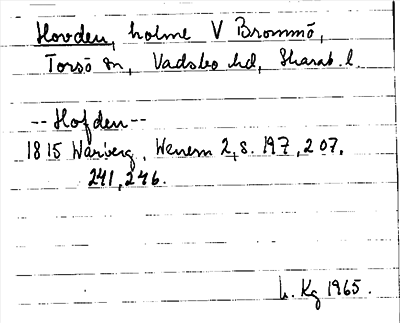 Hovden, holme V Brommö,
Torsö sn, Vadsbo hd, Skarab. l.
-- Hofden --
1815 Warberg, Wenern 2, s. 197, 207,
241, 246.
L. Kg 1965.